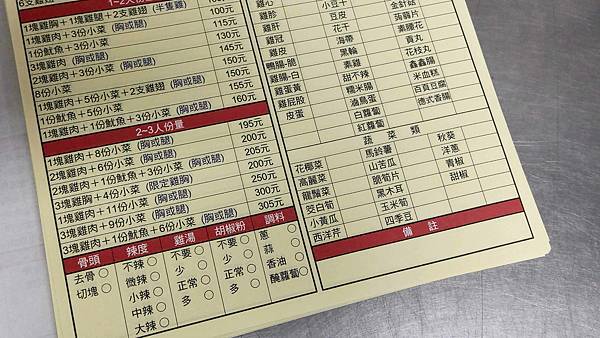 6支雞翅
1塊雞胸+1塊雞腿+2支雞翅 (半隻雞)
1塊雞肉+3份小菜 (胸或腿) 100元
1份魷魚+3份小菜 115元
3塊雞肉 (胸或腿) 130元
2塊雞肉+3份小菜 (胸或腿) 145元
8份小菜 150元
1塊雞肉+5份小菜+2支雞翅 (胸或腿) 150元
1份魷魚+5份小菜 155元
1塊雞肉+1份魷魚+3份小菜 (胸或腿) 160元
2~3人份量
1塊雞肉+8份小菜 (胸或腿) 195元
2塊雞肉+6份小菜 (胸或腿) 200元
2塊雞肉+1份魷魚+3份小菜 (胸或腿) 205元
3塊雞胸+4份小菜 (限定雞胸) 200元
1塊雞肉+11份小菜 (胸或腿) 250元
3塊雞肉+9份小菜 (胸或腿) 300元
3塊雞肉+1份魷魚+6份小菜 (胸或腿) 305元
骨頭 辣度 雞湯 胡椒粉 調料
去骨○ 不辣○ 不要○ 不要○ 蔥○
切塊○ 微辣○ 少○ 少○ 蒜○
小辣○ 正常○ 正常○ 香油○
中辣○ 多○ 多○ 醃蘿蔔○
大辣○
雞心 金針菇
雞胗 豆皮 蒟蒻片
雞肝 花干 素腰花
雞冠 海帶 貢丸
雞皮 黑輪 花枝丸
鴨腸-脆 素雞 鑫鑫腸
雞腸-白 甜不辣 米血糕
雞蛋黃 糯米腸 百頁豆腐
雞屁股 滷鳥蛋 德式香腸
皮蛋 白蘿蔔
紅蘿蔔
蔬菜類
花椰菜 馬鈴薯 秋葵
高麗菜 山苦瓜 洋蔥
龍鬚菜 脆筍片 青椒
茭白筍 黑木耳 甜椒
小黃瓜 玉米筍
西洋芹 四季豆
備註